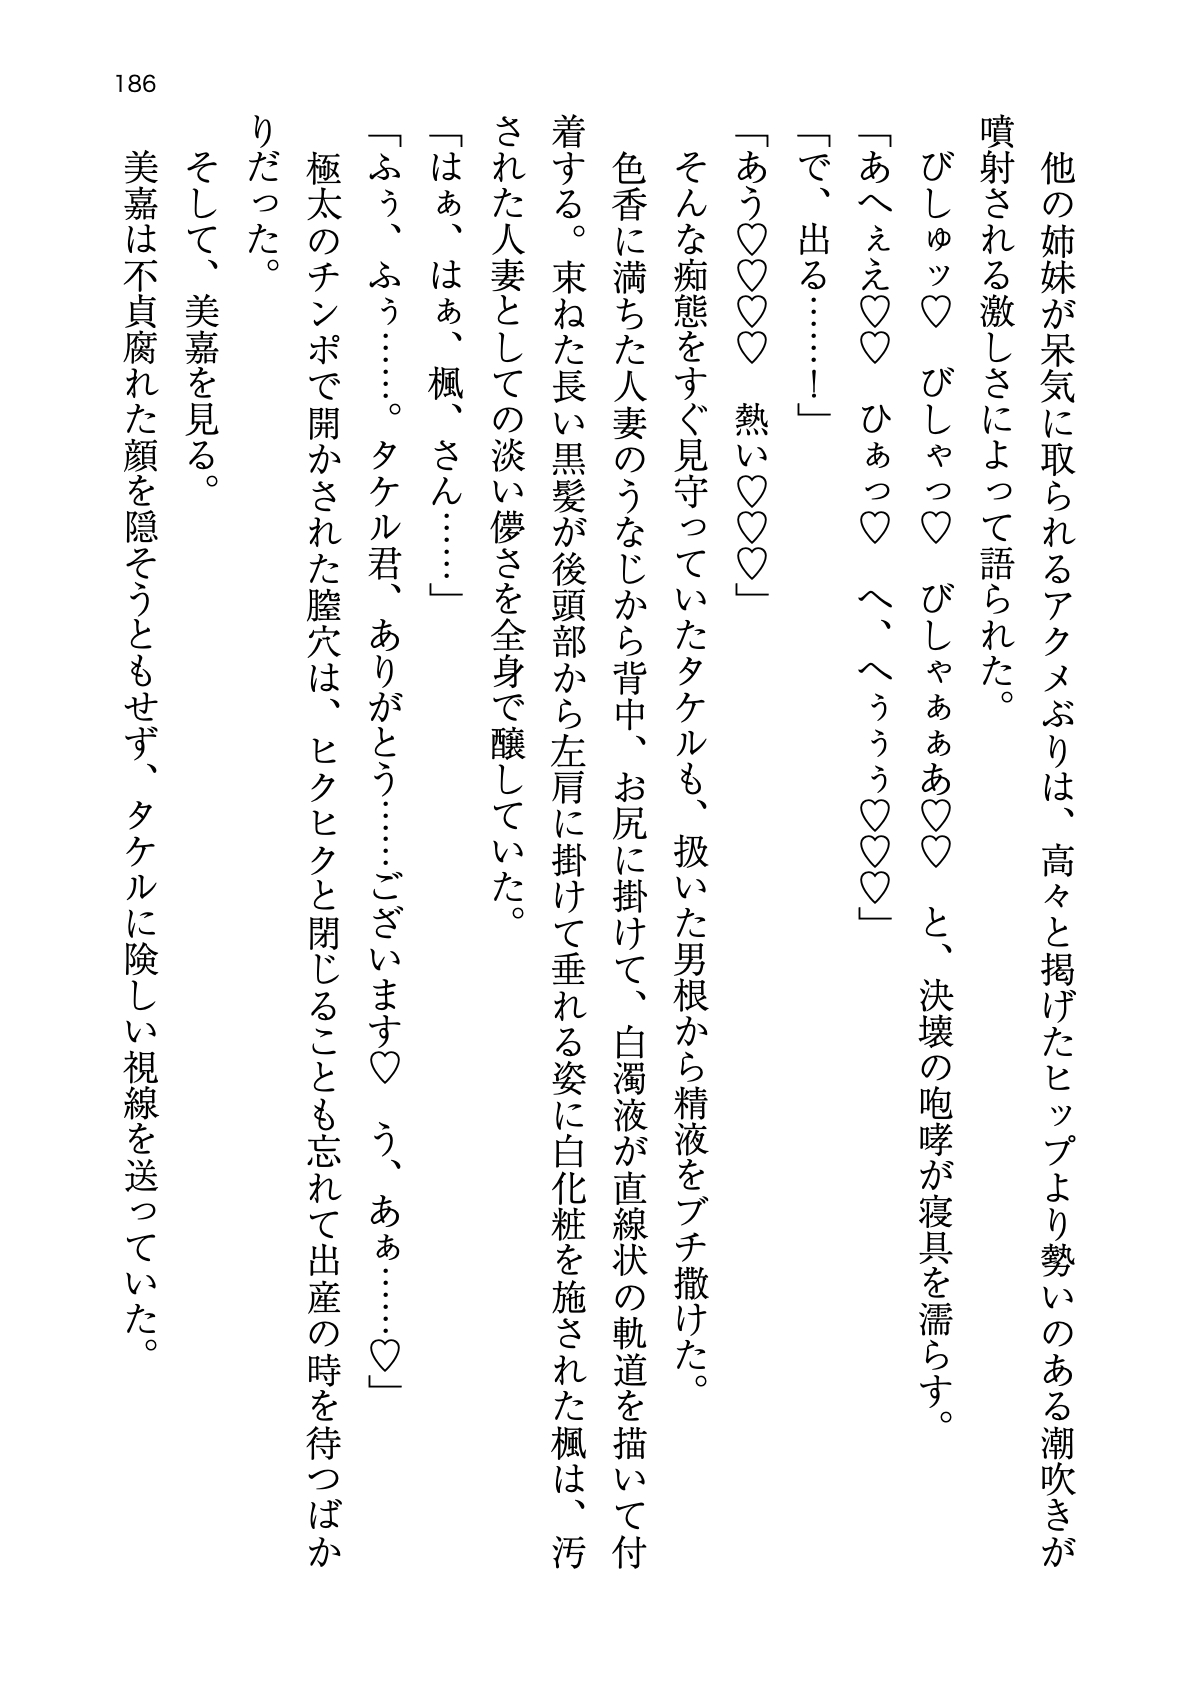 186
　他の姉妹が呆気に取られるアクメぶりは、高々と掲げたヒップより勢いのある潮吹きが
噴射される激しさによって語られた。
　びしゅッ♡　びしゃっ♡　びしゃぁぁあ♡♡　と、決壊の咆哮が寝具を濡らす。
「あへぇえ♡♡　ひぁっ♡　へ、へぅぅぅ♡♡♡」
「で、出る……！」
「あう♡♡♡♡　熱い♡♡♡」
　そんな痴態をすぐ見守っていたタケルも、扱いた男根から精液をブチ撒けた。
　色香に満ちた人妻のうなじから背中、お尻に掛けて、白濁液が直線状の軌道を描いて付
着する。束ねた長い黒髪が後頭部から左肩に掛けて垂れる姿に白化粧を施された楓は、汚
された人妻としての淡い儚さを全身で醸していた。
「はぁ、はぁ、楓、さん……」
「ふぅ、ふぅ……。タケル君、ありがとう……ございます♡　う、あぁ……♡」
　極太のチンポで開かされた膣穴は、ヒクヒクと閉じることも忘れて出産の時を待つばか
りだった。
　そして、美嘉を見る。
　美嘉は不貞腐れた顔を隠そうともせず、タケルに険しい視線を送っていた。